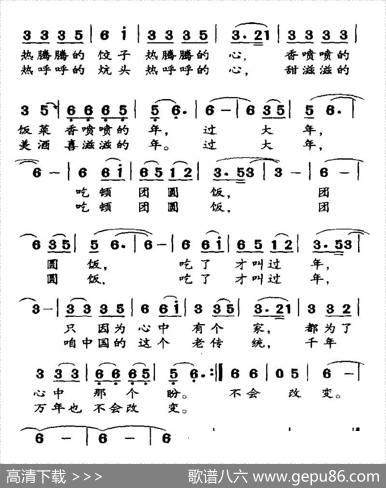 3 3 3 5 | 6 i | 3 3 3 5 | 3. 21 | 3 3 3 5 |
热腾腾的 饺子 热腾腾的 心, 香喷喷的
热呼呼的 炕头 热呼呼的 心, 甜滋滋的
3 5 | 6 6 6 5 | 5 6. | 6 – | 6 35 | 5 6. |
饭菜 香喷喷的 年, 过 大 年,
美酒 喜滋滋的 年。 过 大 年,
6 – | 6 6 i | 6 5 1 2 | 3. 53 | 3 – | 6 – |
吃顿 团圆 饭, 团
吃顿 团圆 饭, 团
6 35 | 5 6. | 6 – | 6 6 i | 6 5 1 2 | 3. 53 |
圆 饭, 吃了 才叫过 年,
圆 饭, 吃了 才叫过 年,
3 – | 3 3 3 5 | 6 i | 3 3 3 5 | 3. 21 | 3 3 2 |
只 因为 心中 有个 家, 都为了
咱中国的 这个 老传 统, 千年
3 3 3 | 6 6 6 5 | 5 6. :| 6 6 | 0 5 | 6 – |
心中 那个 盼。 不会 改 变。
万年也 不会改 变。
6 – | 6 – | 6 – | 6
高清下载 >>> 歌谱八六 www.gepu86.com